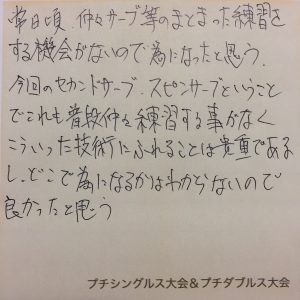 常日頃、仲々サーブ等のまとまった練習を
する機会がないので為になったと思う.
今回のセカンドサーブ.スピンサーブということ
でこれも普段仲々練習する事がなく
こういった技術にふれることは貴重である
し、どこで為になるかはわからないので
良かったと思う
プチシングルス大会&プチダブルス大会